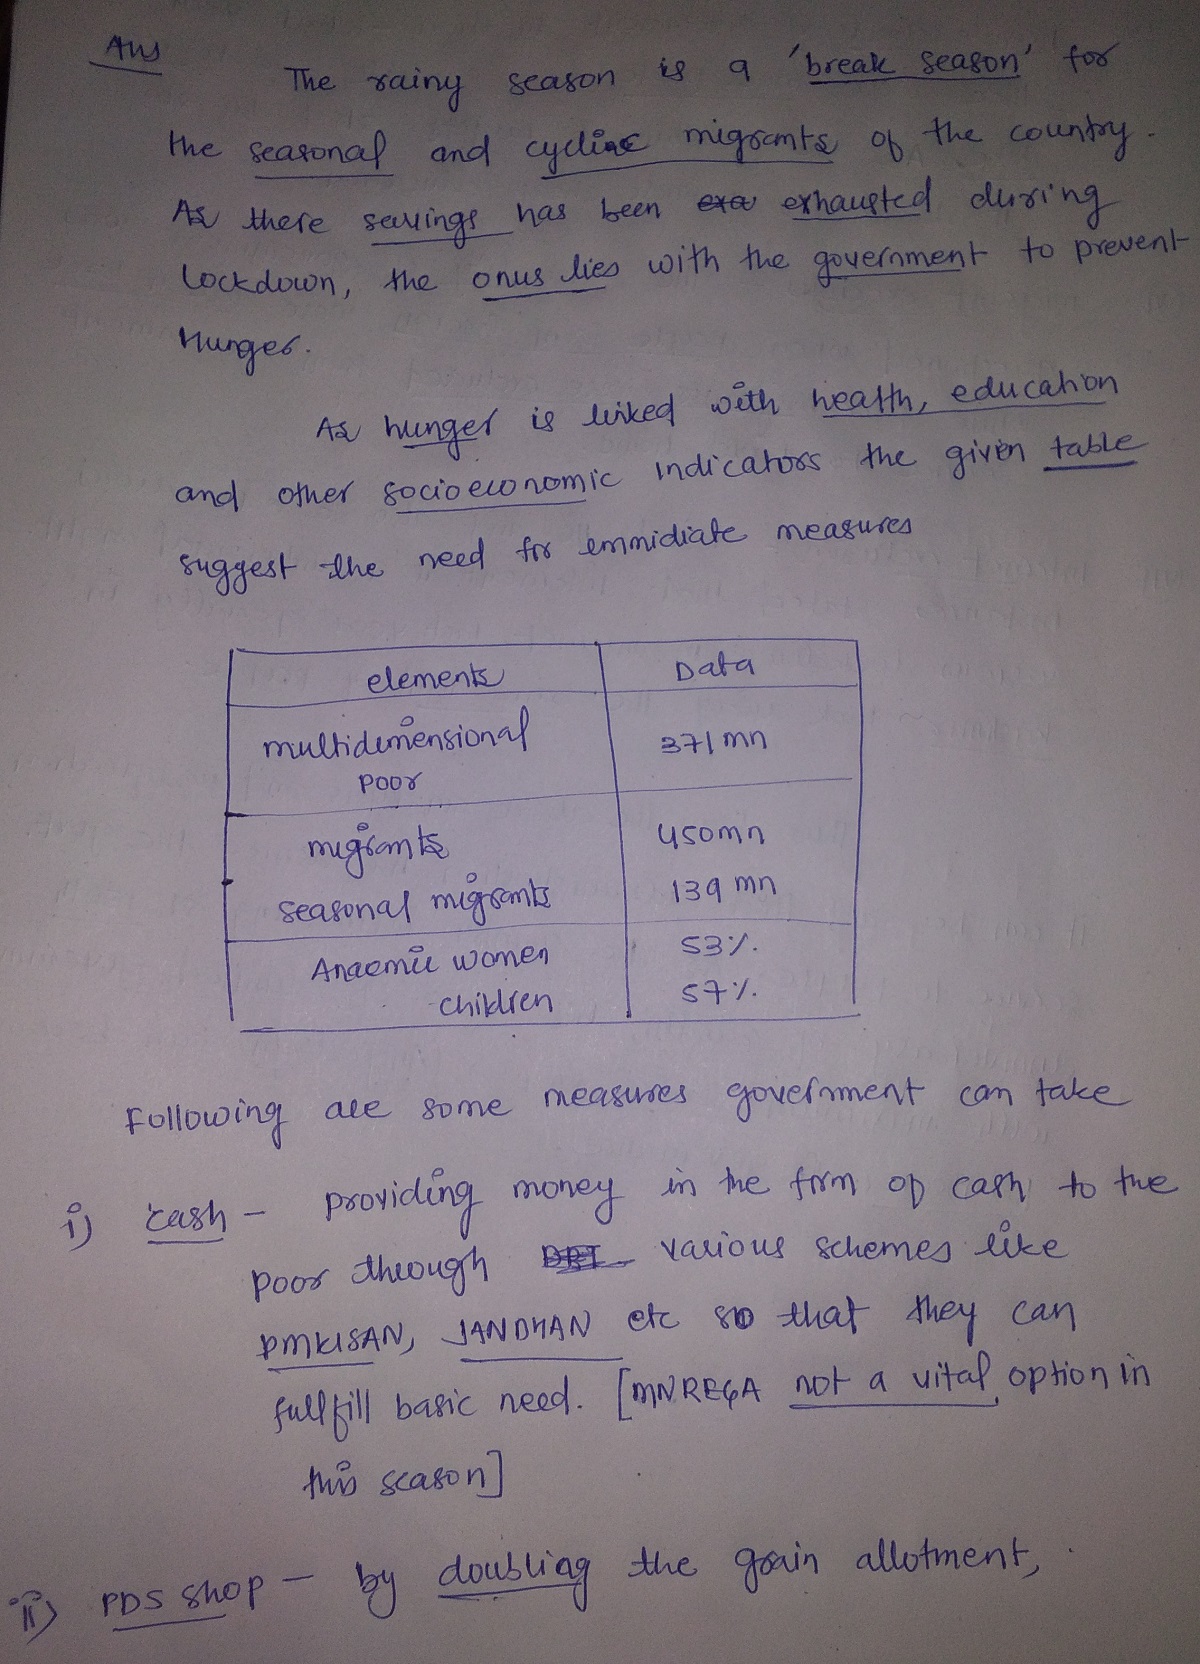 Ans
The rainy season is a 'break season' for
the seasonal and cyclic migrants of the country.
As there savings has been exhausted during
lockdown, the onus lies with the government to prevent
Hunger.
As hunger is linked with health, education
and other socioeconomic indicators the given table
suggest the need for emmidiate measures
elements Data
multidimensional 371 mn
poor
migrants 450 mn
seasonal migrants 139 mn
Anaemic women 53%.
children 57%.
Following are some measures government can take
i) cash - providing money in the form of cash to the
poor through various schemes like
PMKISAN, JANDHAN etc so that they can
fullfill basic need. [MNREGA not a vital option in
this season]
ii) PDS shop - by doubling the grain allotment,